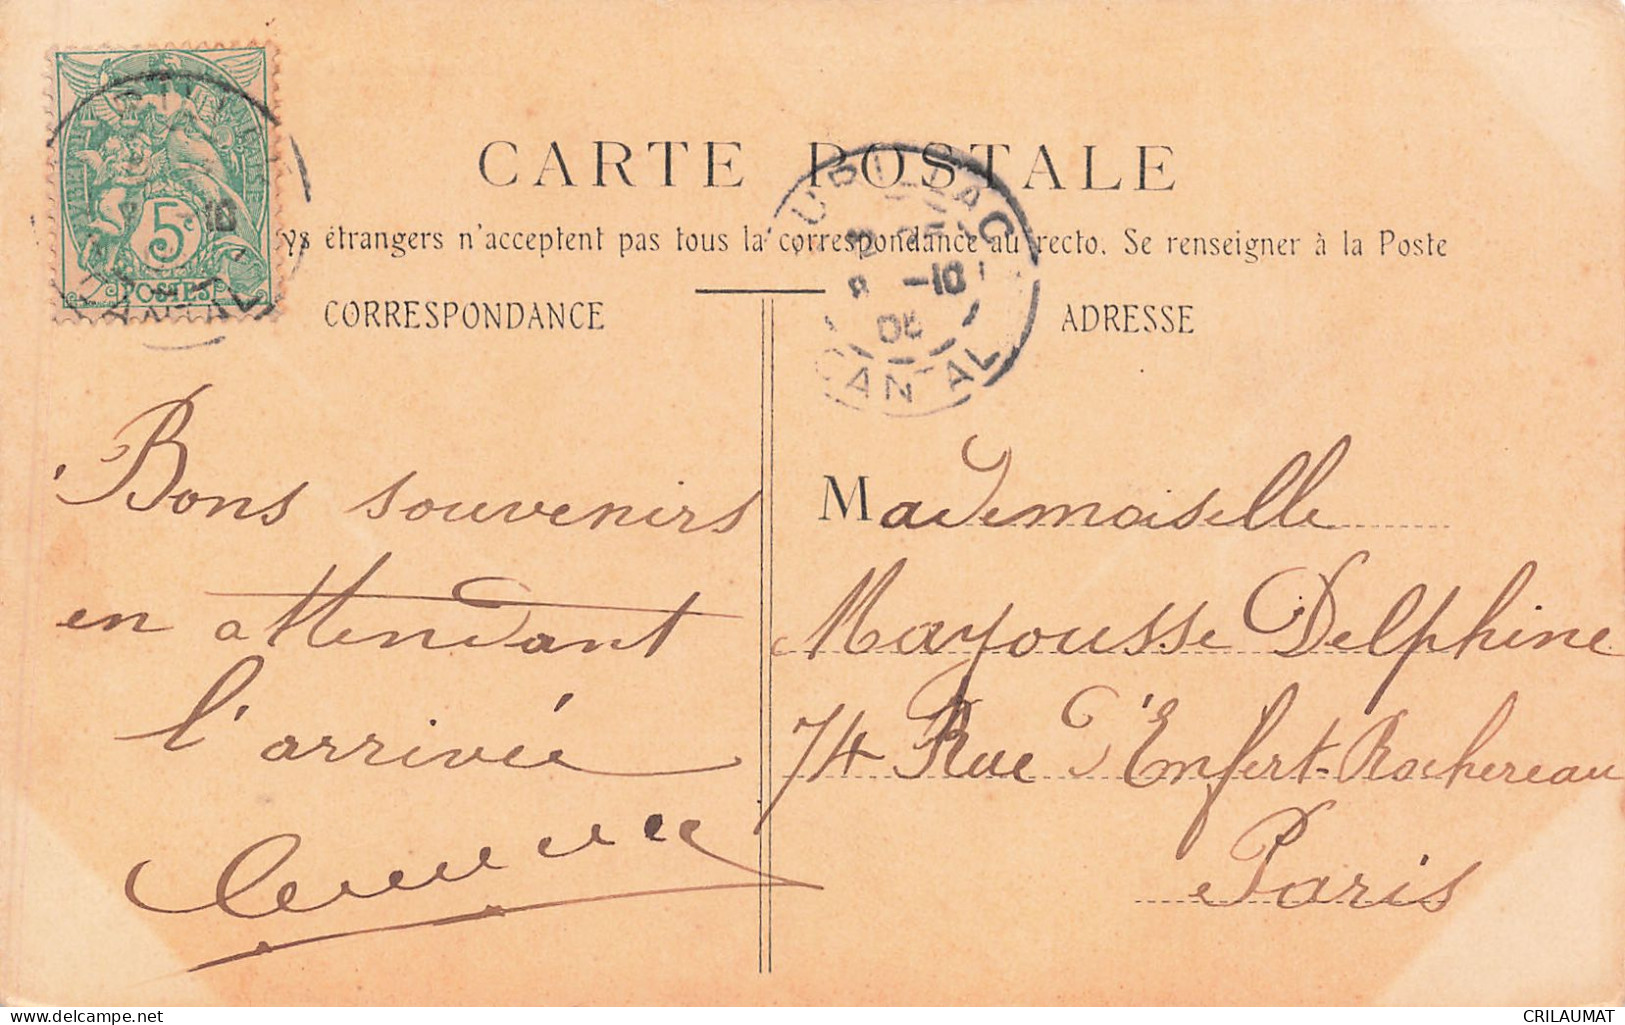 CARTE POSTALE
ys étrangers n'acceptent pas tous la correspondance au recto. Se renseigner à la Poste
CORRESPONDANCE
ADRESSE
5c
POSTES
10
CANTAL
-10
CANTAL
Bons souvenirs
en attendant
l'arrivée
Mademoiselle
Mayousse Delphine
74 Rue d'Enfert-Rochereau
Paris
CRILAUMAT